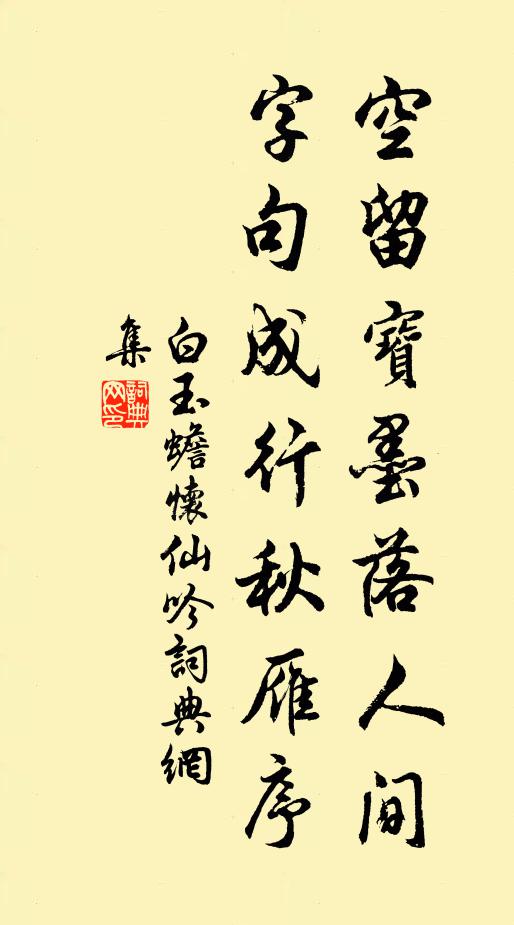 空留寶墨落人间
字句成行秋雁序
白玉蟾懷仙吟詞典網
集
詞典
网印